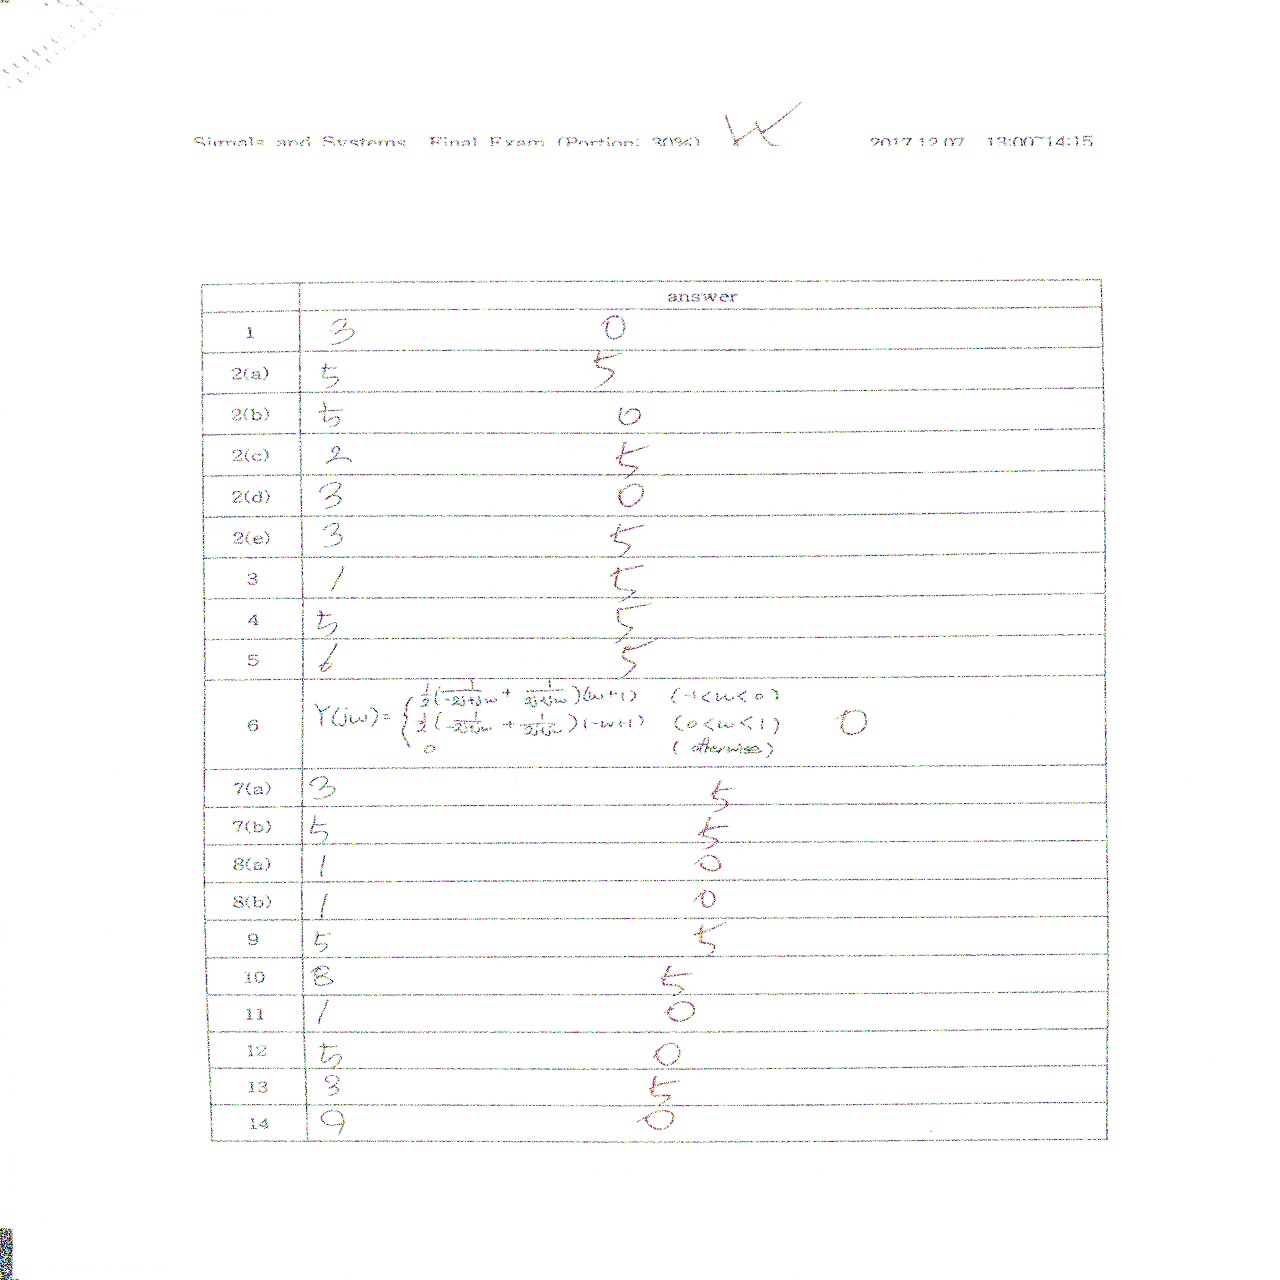 Signals and Systems Final Exam (Portion: 30%) 2017.12.07 13:00~14:15
answer
1 3 0
2(a) 5 5
2(b) 5 0
2(c) 2 5
2(d) 3 0
2(e) 3 5
3 1 5
4 5 5
5 6 5
1/2(1/(-2j+jω) + 1/(2j+jω))(ω+1) (-1<ω<0)
6 Y(jω)= { 1/2(1/(-2j+jω) + 1/(2j+jω))(-ω+1) (0<ω<1) 0
0 (otherwise)
7(a) 3 5
7(b) 5 5
8(a) 1 0
8(b) 1 0
9 5 5
10 8 5
11 1 0
12 5 0
13 3 5
14 9 0